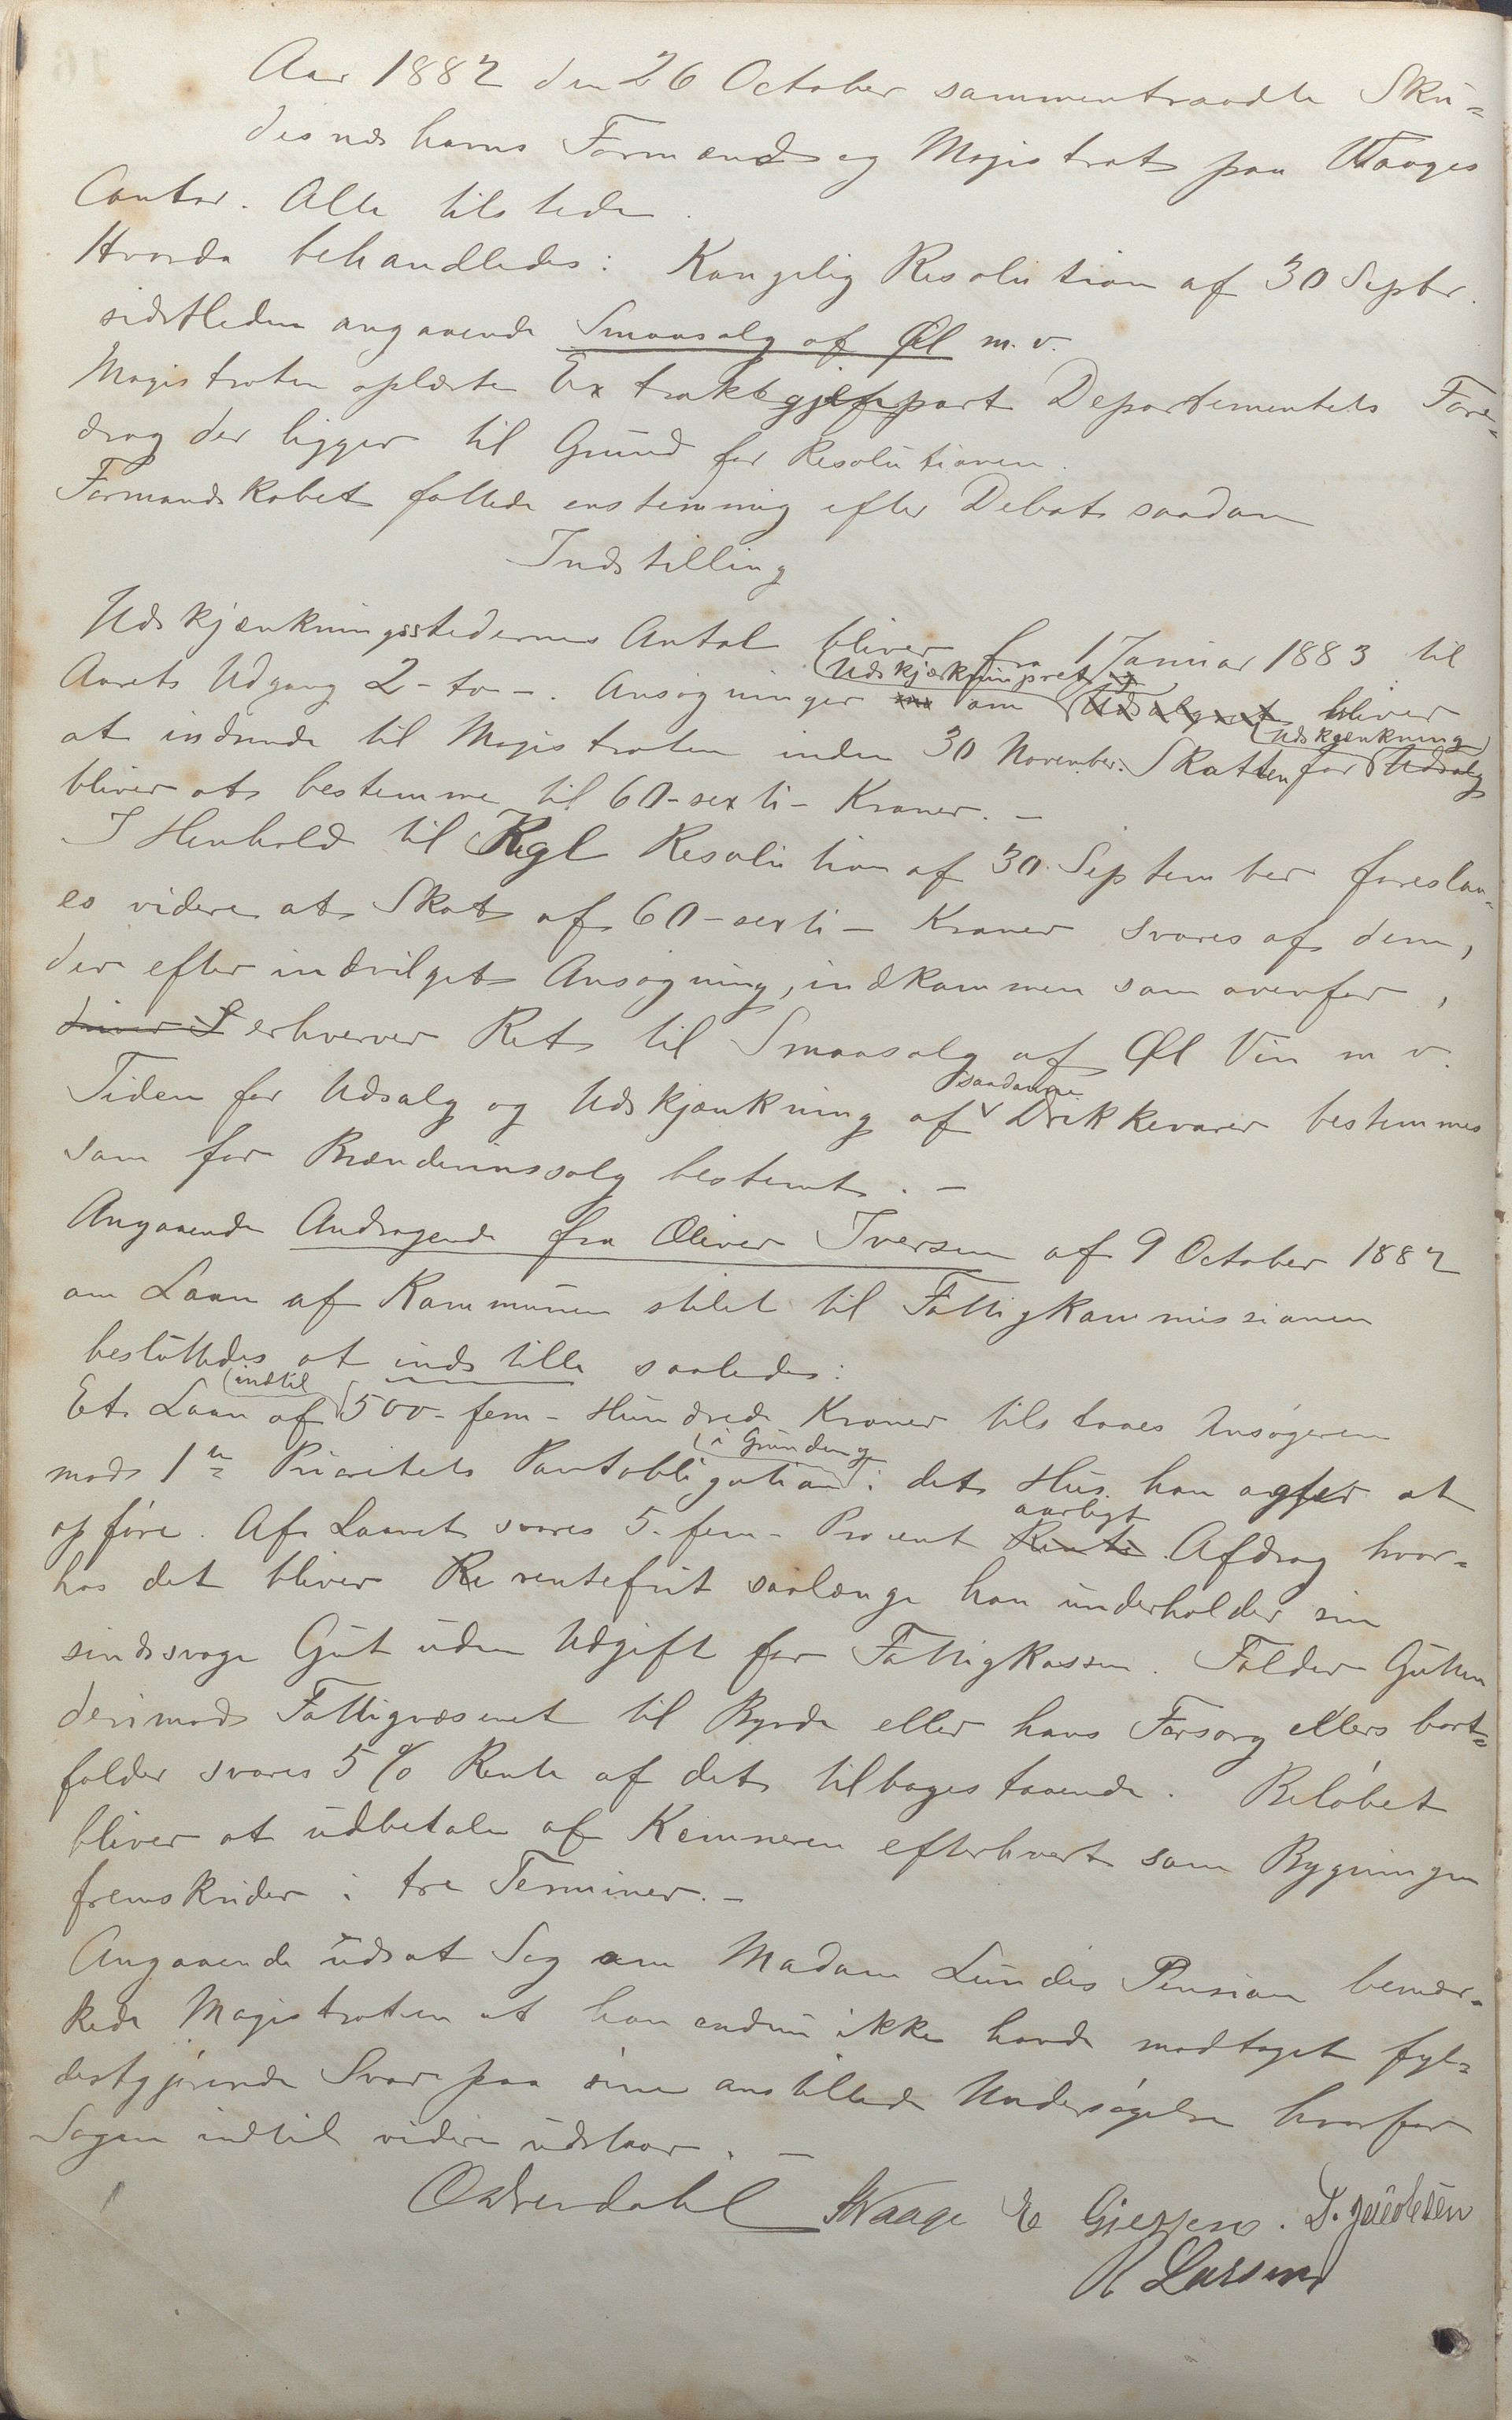 Aar 1882 den 26 October sammentraadte Sku-
desnæshavns Formænd og Magistrat paa Waages
Contor. Alle tilstede.
Hvorda behandledes: Kongelig Resolution af 30 Septbr.
sidstleden angaaende Smaasalg af Øl m.v.
Magistraten oplæste Extraktgjenpart Departementets Fore-
drag der ligger til Grund for Resolutionen.
Formandskabet fattede enstemmig efter Debat saadan
Indstilling
Udskjænkningsstedernes Antal bliver fra 1 Januar 1883 til
Aarets Udgang 2 - to -. Ansøgninger om Udskjænkningsret bliver
at indsende til Magistraten inden 30 November. Skatten for Udsalg Udskjænkning
bliver at bestemme til 60 - sexti - Kroner. -
I Henhold til Kgl Resolution af 30 September foreslaa-
es videre at Skat af 60 - sexti - Kroner svares af dem,
der efter indvilget Ansøgning, indkommen som ovenfor,
driver S erhverver Ret til Smaasalg af Øl Vin m v.
Tiden for Udsalg og Udskjænkning af saadanne Drikkevarer bestemmes
som for Brændevinssalg bestemt. -
Angaaende Andragende fra Oliver Iversen af 9 October 1882
om Laan af Kommunen stilet til Fattigkommissionen
besluttedes at indstille saaledes:
Et Laan af indtil 500 - fem - Hundrede Kroner tilstaaes Ansøgeren
mod 1ste Prioritets Pantobligation i Grunden og i det Hus han agter at
opføre. Af Laanet svares 5 - fem - Procent Rente aarligt Afdrag hvor-
hos det bliver Re rentefrit saalænge han underholder sin
sindssvage Gut uden Udgift for Fattigkassen. Falder Gutten
derimod Fattigvæsenet til Byrde eller hans Forsorg ellers bort-
falder svares 5 % Rente af det tilbagestaaende. Beløbet
bliver at udbetale af Kemneren efterhvert som Bygningen
fremskrider i tre Terminer. -
Angaaende udsat Sag om Madam Lundes Pension bemær-
kede Magistraten at han endnu ikke havde modtaget fyl-
destgjørende Svar paa sine anstillede Undersøgelser hvorfor
Sagen indtil videre udstaar. -
Waage E Gjessen. D. Jacobsen
R Larsen